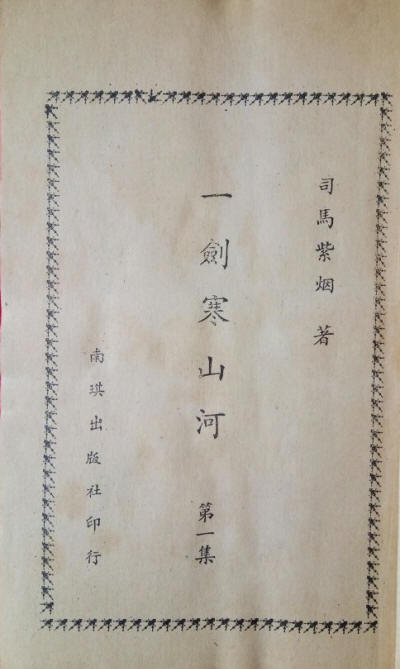 司馬紫烟 著
一劍寒山河 第一集
南琪出版社印行